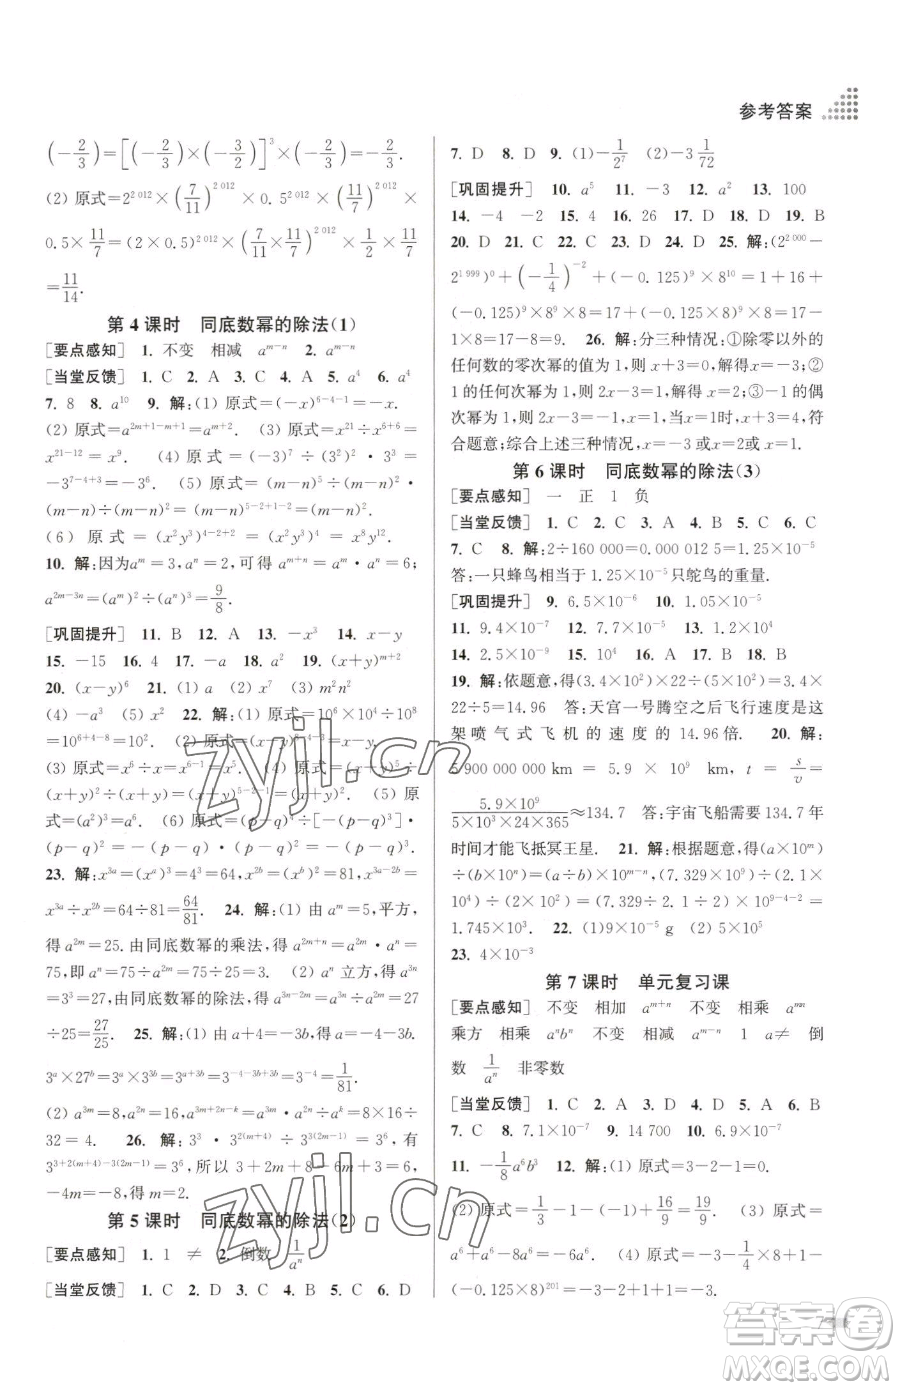 参考答案
(-2/3)=[(-2/3)×(-2/3)]^3×(-2/3)=-2/3.
(2) 原式=2^{2 012}×(7/11)^{2 012}×0.5^{2 012}×(11/7)^{2 012}×
0.5×11/7=(2×0.5)^{2 012}×(7/11×11/7)^{2 012}×0.5×11/7
=11/14.
第 4 课时 同底数幂的除法(1)
[要点感知] 1. 不变 相减 a^{m-n} 2. a^{m-n}
[当堂反馈] 1. C 2. A 3. C 4. A 5. a^4 6. a^4
7. 8 8. a^{10} 9. 解:(1) 原式=(-x)^{6-4-1}=-x.
(2) 原式=a^{2m+1-m+1}=a^{m+2}. (3) 原式=x^{21}÷x^{6+6}=
x^{21-12}=x^9. (4) 原式=(-3)^7÷3^4·3^3=
-3^{7-4+3}=-3^6. (5) 原式=(m-n)^5÷(m-n)^2·
(m-n)÷(m-n)^2=(m-n)^{5-2+1-2}=(m-n)^2.
(6) 原式=(x^2y^3)^{4-2+2}=(x^2y^3)^4=x^8y^{12}.
10. 解:因为a^m=3,a^n=2,可得a^{2m}=9,a^{3n}=8;
a^{2m-3n}=(a^m)^2÷(a^n)^3=9/8.
[巩固提升] 11. B 12. A 13. -x^3 14. x-y
15. -15 16. 4 17. -a 18. a^2 19. (x+y)^{m+2}
20. (x-y)^6 21. (1) a (2) x^7 (3) m^2n^2
(4) -a^3 (5) x^2 22. 解:(1) 原式=10^6×10^4÷10^8
=10^{6+4-8}=10^2. (2) 原式=
(3) 原式=x^6÷x^5=x^{6-5}=x. (4) 原式=
(x+y)^4÷(x+y)^2=(x+y)^2. (5) 原
式=(a^2)^3÷a^4=a^2. (6) 原式=(p-q)^4÷[-(p-q)^3]·
(p-q)^2=-(p-q)·(p-q)^2=-(p-q)^3.
23. 解:x^{3a}=(x^a)^3=4^3=64,x^{2b}=(x^b)^2=9^2=81,
x^{3a}÷x^{2b}=64÷81=64/81. 24. 解:(1) 由a^m=5,平方,
得a^{2m}=25. 由同底数幂的乘法,得a^{2m+n}=a^{2m}·a^n=
75,a^n=75÷a^{2m}=3. (2) a^n立方,得a^{3n}
=3^3=27,由同底数幂的除法,得a^{3n-2m}=a^{3n}÷a^{2m}=27
÷25=27/25. 25. 解:(1) 由a+4=-3b,得a=-4-3b.
3^a×27^b=3^a×3^{3b}=3^{a+3b}=3^{-4-3b+3b}=3^{-4}=1/81.
(2) a^{3m}=8,a^{2n}=16,a^{3m+2n-k}=a^{3m}·a^{2n}÷a^k=8×16÷
32=4. 26. 解:3·3^{2(m+4)}÷3^{(2m-1)}=
3^{3+2(m+4)-3(2m-1)},所以3+2m+8-6m+3=
-4m=-8,得m=2.
第 5 课时 同底数幂的除法(2)
[要点感知] 1. 1 ≠ 2. 倒数 1/a^n
[当堂反馈] 1. C 2. A 3. B 4. A 5. C 6. D
7. D 8. D 9. (1)-1/2^7 (2)-3 1/72
[巩固提升] 10. a^5 11. -3 12. a^2 13. 100
14. -4 -2 15. 4 16. 26 17. D 18. D 19. B
20. D 21. D 22. C 23. A 24. D 25. 解:(2^{2 000}-
2^{1 999})^0+(-1/4)^{-2}+(-0.125)^9×8^{10}=1+16+
(-0.125)^9×8^9×8=17+(-0.125×8)^9×8=17-
1×8=17-8=9. 26. 解:分三种情况:①除零以外的
任何数的零次幂的值为1,则x+3=0,解得x=-3;②
1的任何次幂为1,则2x-3=1,解得x=2;③-1的偶
次幂为1,则2x-3=-1,解得x=1,当x=1时,x+3=4,符
合题意;综合上述三种情况,x=-3或x=2或x=1.
第 6 课时 同底数幂的除法(3)
[要点感知] 一 正 1 负
[当堂反馈] 1. C 2. C 3. A 4. B 5. C 6. C
7. C 8. 解:2÷160 000=0.000 012 5=1.25×10^{-5}
答:一只蜂鸟相当于1.25×10^{-5}只鸵鸟的重量.
[巩固提升] 9. 6.5×10^{-6} 10. 1.05×10^{-5}
11. 9.4×10^{-7} 12. 7.7×10^{-5} 13. 1.2×10^4
14. 2.9×10^{-8} 15. 10^4 16. A 17. B 18. B
19. 解:依题意,得(3.4×10^2)×22÷(5×10^2)=3.4×
22÷5=14.96 答:天宫一号腾空之后飞行速度是这
架喷气式飞机的速度的14.96倍. 20. 解:
5 900 000 000 km=5.9×10^9 km,t=s/v=
5.9×10^9/(5×10^3×24×365)≈134.7 答:宇宙飞船需要134.7年
时间才能飞抵冥王星. 21. 解:根据题意,得(a×10^m)
÷(b×10^n)=(7.329×10^9)÷(2.1×
10^4)÷(5×10^2)=(7.329÷2.1÷2)×10^{9-4-2}=
1.745×10^3 22. (1) 9×10^{-5} g (2) 3.6×10^{-5}
23. 4×10^{-3}
第 7 课时 单元复习课
[要点感知] 不变 相加 a^{m+n} 不变 相乘 a^{mn}
乘方 相乘 a^nb^n 不变 相减 a^{m-n} 1 a≠ 倒
数 1/a^n 非零数
[当堂反馈] 1. C 2. A 3. D 4. D 5. A 6. B
7. C 8. 7.1×10^{-7} 9. 14 700 10. 6.9×10^{-7}
11. -1/8a^6b^3 12. 解:(1) 原式=3-2-1=0.
(2) 原式=1/3-1/9+2=16/9=19/9. (3) 原式=
a^6+a^6-8a^6=-6a^6. (4) 原式=-3-1/4×8+1
-(-0.125×8)^{201}=-3-2+1+1=-3.
zyjl.cn
zyjl.cn
答案圈
MXQE.COM